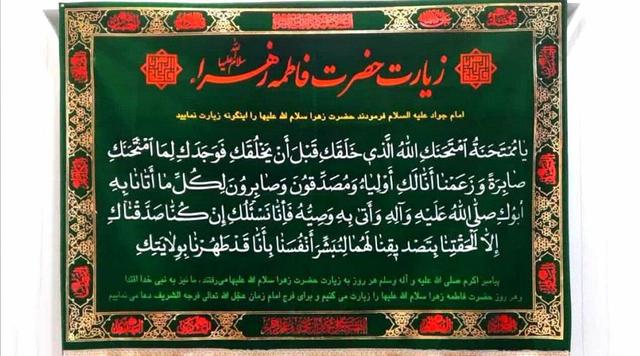 زیارت حضرت فاطمه زهراء سلام الله علیها
امام جواد علیه السلام فرمودند حضرت زهرا سلام الله علیها را اینگونه زیارت نمایید
يا مُمْتَحَنَةُ امْتَحَنَكِ اللهُ الَّذي خَلَقَكِ قَبْلَ أَنْ يَخْلُقَكِ فَوَجَدَكِ لِمَا امْتَحَنَكِ
صابِرَةً وَ زَعَمْنا أَنّا لَكِ أَوْلِياءُ وَ مُصَدِّقُونَ وَ صابِرُونَ لِكُلِّ ما أَتانا بِهِ
أَبُوكِ صَلَّى اللهُ عَلَيْهِ وَآلِهِ وَ أَتى بِهِ وَصِيُّهُ فَإِنّا نَسْئَلُكِ إِنْ كُنّا صَدَّقْناكِ
إِلّا أَلْحَقْتِنا بِتَصْديقِنا لَهُما لِنُبَشِّرَ أَنْفُسَنا بِأَنّا قَدْ طَهُرْنا بِوِلايَتِكِ
پیامبر اکرم صلی الله علیه و آله وسلم هر روز به زیارت حضرت زهرا سلام الله علیها می‌رفتند، ما نیز به نبی خدا اقتدا
وهر روز حضرت فاطمه زهرا سلام الله علیها را زیارت می کنیم و برای فرج امام زمان عجّل الله تعالی فرجه الشریف دعا می نماییم